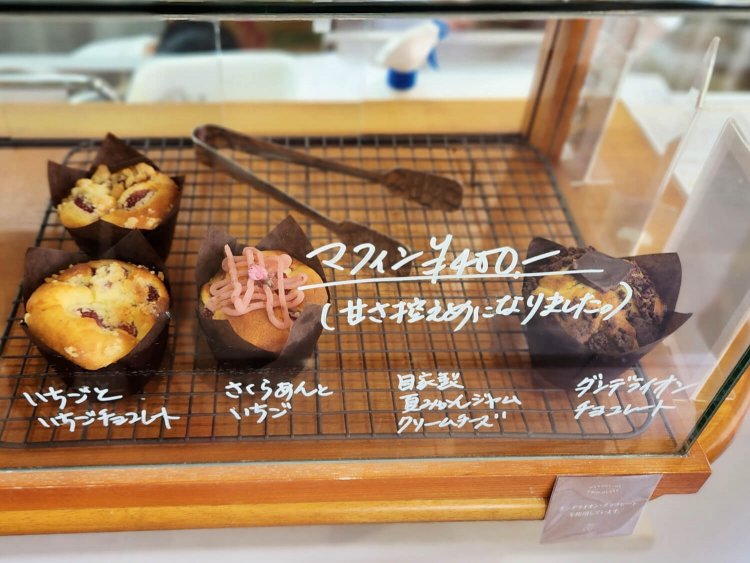 マフィン ¥400.-
(甘さ控えめになりました。)
いちごと
いちごチョコレート
さくらあんと
いちご
自家製
夏みかんジャム
クリームチーズ
ダンデライオン
チョコレート
を使用しています。